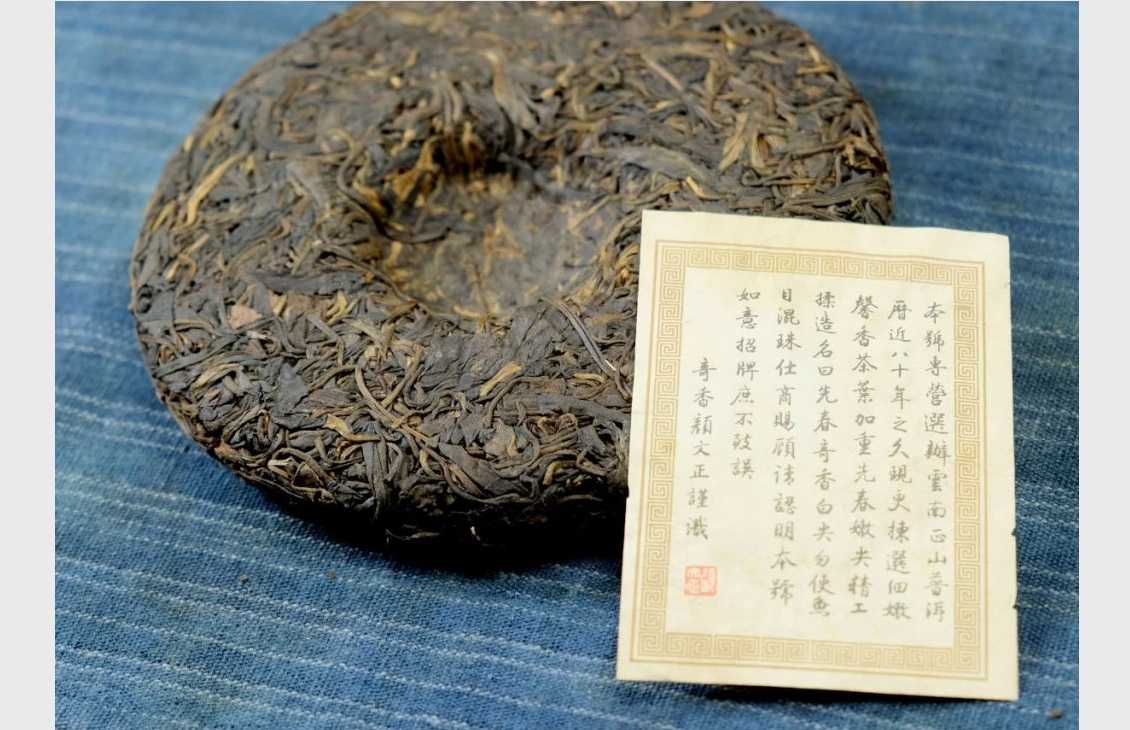 本號專營選辦雲南正山普洱
厯近八十年之久現更揀選細嫩
馨香茶葉加重先春嫩尖精工
揉造名曰先春奇香白尖勿使魚
目混珠仕商賜顧請認明本號
如意招牌庶不致誤
奇香顏文正謹識